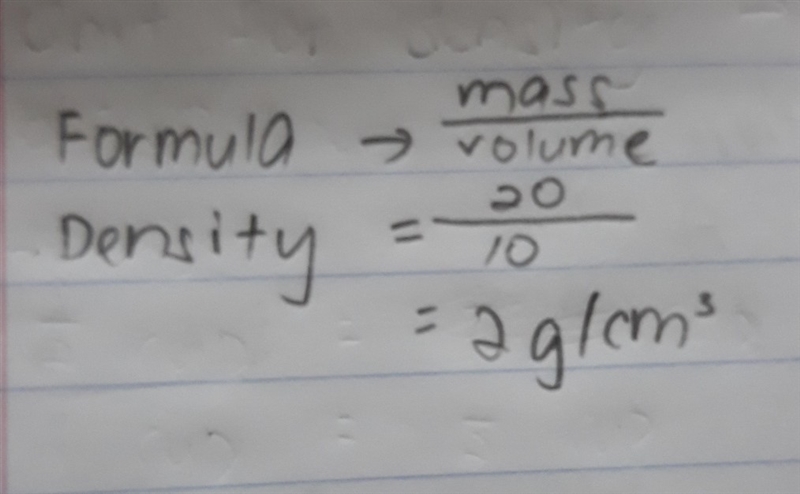 Formula → mass/volume
Density = 20/10
= 2g/cm³